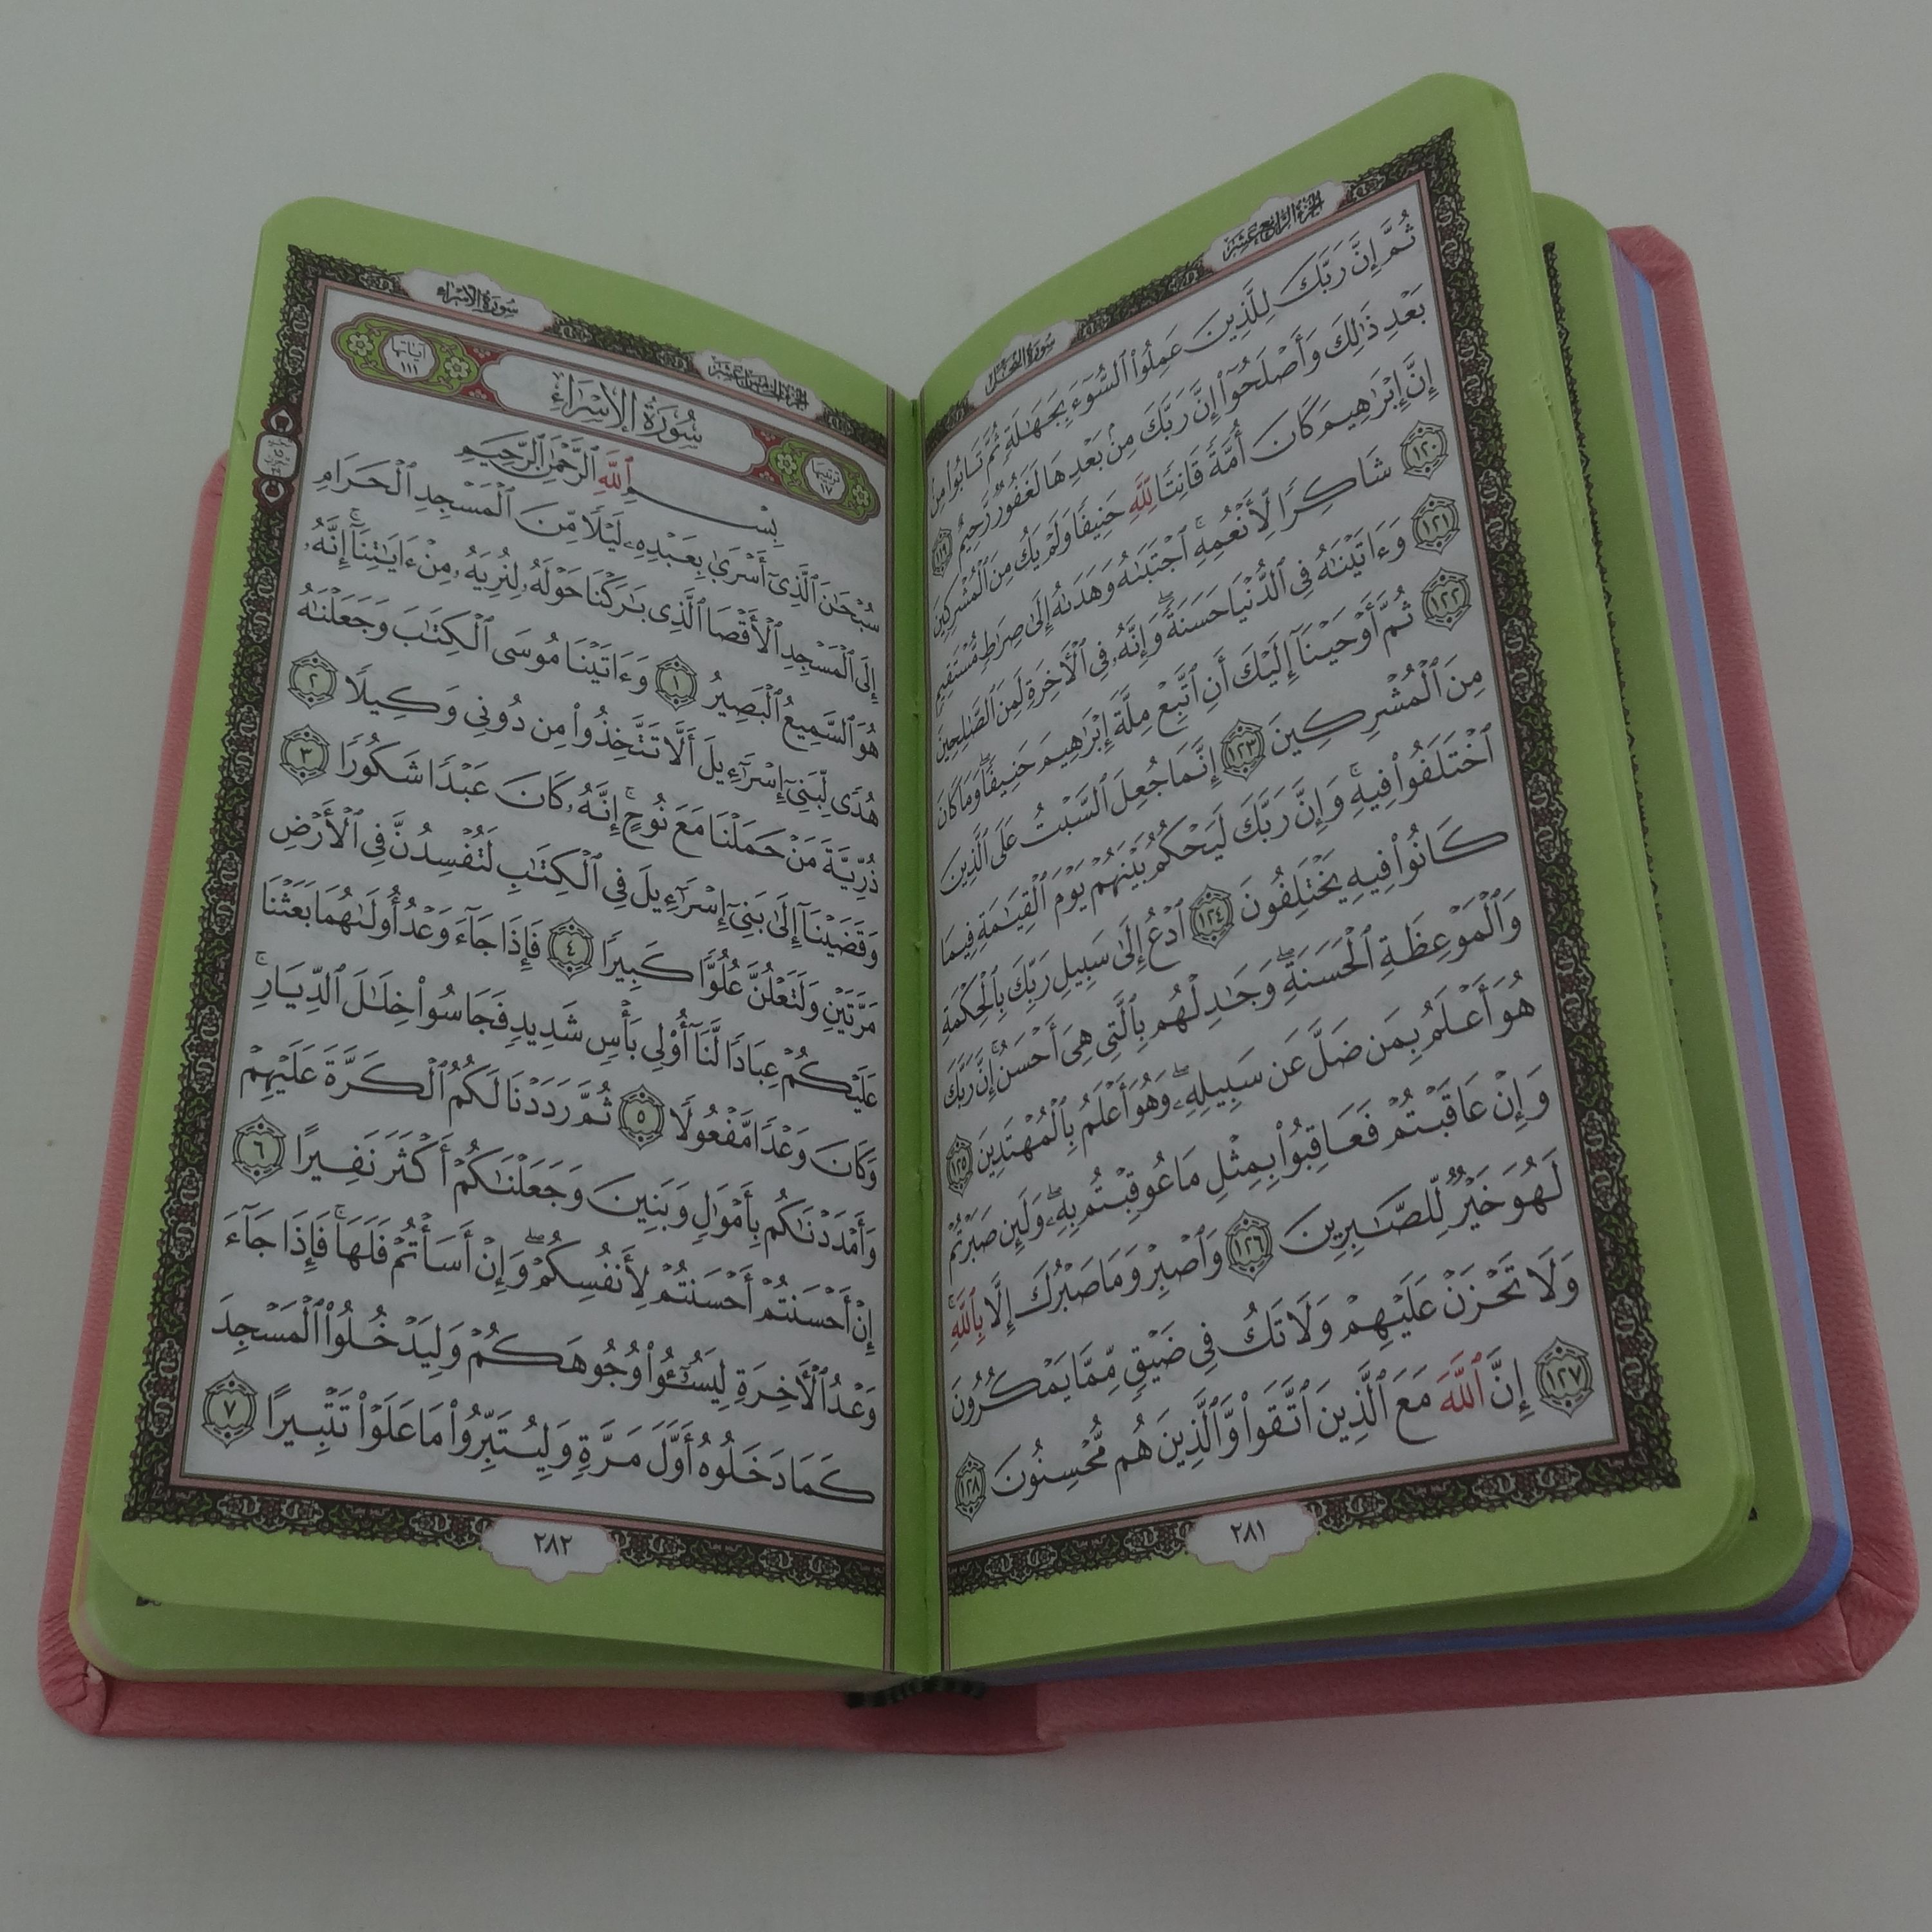 الجزء الرابع عشر
سورة النحل
ثُمَّ إِنَّ رَبَّكَ لِلَّذِينَ عَمِلُواْ ٱلسُّوٓءَ بِجَهَٰلَةٖ ثُمَّ تَابُواْ مِنۢ
بَعۡدِ ذَٰلِكَ وَأَصۡلَحُوٓاْ إِنَّ رَبَّكَ مِنۢ بَعۡدِهَا لَغَفُورٞ رَّحِيمٌ ١١٩
إِنَّ إِبۡرَٰهِيمَ كَانَ أُمَّةٗ قَانِتٗا لِّلَّهِ حَنِيفٗا وَلَمۡ يَكُ مِنَ ٱلۡمُشۡرِكِينَ
١٢٠ شَاكِرٗا لِّأَنۡعُمِهِۚ ٱجۡتَبَىٰهُ وَهَدَىٰهُ إِلَىٰ صِرَٰطٖ مُّسۡتَقِيمٖ
١٢١ وَءَاتَيۡنَٰهُ فِي ٱلدُّنۡيَا حَسَنَةٗۖ وَإِنَّهُۥ فِي ٱلۡأٓخِرَةِ لَمِنَ ٱلصَّٰلِحِينَ
١٢٢ ثُمَّ أَوۡحَيۡنَآ إِلَيۡكَ أَنِ ٱتَّبِعۡ مِلَّةَ إِبۡرَٰهِيمَ حَنِيفٗاۖ وَمَا كَانَ
مِنَ ٱلۡمُشۡرِكِينَ ١٢٣ إِنَّمَا جُعِلَ ٱلسَّبۡتُ عَلَى ٱلَّذِينَ
ٱخۡتَلَفُواْ فِيهِۚ وَإِنَّ رَبَّكَ لَيَحۡكُمُ بَيۡنَهُمۡ يَوۡمَ ٱلۡقِيَٰمَةِ فِيمَا
كَانُواْ فِيهِ يَخۡتَلِفُونَ ١٢٤ ٱدۡعُ إِلَىٰ سَبِيلِ رَبِّكَ بِٱلۡحِكۡمَةِ
وَٱلۡمَوۡعِظَةِ ٱلۡحَسَنَةِۖ وَجَٰدِلۡهُم بِٱلَّتِي هِيَ أَحۡسَنُۚ إِنَّ رَبَّكَ
هُوَ أَعۡلَمُ بِمَن ضَلَّ عَن سَبِيلِهِۦۖ وَهُوَ أَعۡلَمُ بِٱلۡمُهۡتَدِينَ ١٢٥
وَإِنۡ عَاقَبۡتُمۡ فَعَاقِبُواْ بِمِثۡلِ مَا عُوقِبۡتُم بِهِۦۖ وَلَئِن صَبَرۡتُمۡ
لَهُوَ خَيۡرٞ لِّلصَّٰبِرِينَ ١٢٦ وَٱصۡبِرۡ وَمَا صَبۡرُكَ إِلَّا بِٱللَّهِۚ
وَلَا تَحۡزَنۡ عَلَيۡهِمۡ وَلَا تَكُ فِي ضَيۡقٖ مِّمَّا يَمۡكُرُونَ
١٢٧ إِنَّ ٱللَّهَ مَعَ ٱلَّذِينَ ٱتَّقَواْ وَّٱلَّذِينَ هُم مُّحۡسِنُونَ ١٢٨
٢٨١
الجزء الخامس عشر
سورة الإسراء
ترتيبها ١٧
سُورَةُ الإِسْرَاءِ
آياتها ١١١
بِسۡمِ ٱللَّهِ ٱلرَّحۡمَٰنِ ٱلرَّحِيمِ
سُبۡحَٰنَ ٱلَّذِيٓ أَسۡرَىٰ بِعَبۡدِهِۦ لَيۡلٗا مِّنَ ٱلۡمَسۡجِدِ ٱلۡحَرَامِ
إِلَى ٱلۡمَسۡجِدِ ٱلۡأَقۡصَا ٱلَّذِي بَٰرَكۡنَا حَوۡلَهُۥ لِنُرِيَهُۥ مِنۡ ءَايَٰتِنَآۚ إِنَّهُۥ
هُوَ ٱلسَّمِيعُ ٱلۡبَصِيرُ ١ وَءَاتَيۡنَا مُوسَى ٱلۡكِتَٰبَ وَجَعَلۡنَٰهُ
هُدٗى لِّبَنِيٓ إِسۡرَٰٓءِيلَ أَلَّا تَتَّخِذُواْ مِن دُونِي وَكِيلٗا ٢
ذُرِّيَّةَ مَنۡ حَمَلۡنَا مَعَ نُوحٍۚ إِنَّهُۥ كَانَ عَبۡدٗا شَكُورٗا ٣
وَقَضَيۡنَآ إِلَىٰ بَنِيٓ إِسۡرَٰٓءِيلَ فِي ٱلۡكِتَٰبِ لَتُفۡسِدُنَّ فِي ٱلۡأَرۡضِ
مَرَّتَيۡنِ وَلَتَعۡلُنَّ عُلُوّٗا كَبِيرٗا ٤ فَإِذَا جَآءَ وَعۡدُ أُولَىٰهُمَا بَعَثۡنَا
عَلَيۡكُمۡ عِبَادٗا لَّنَآ أُوْلِي بَأۡسٖ شَدِيدٖ فَجَاسُواْ خِلَٰلَ ٱلدِّيَارِۚ
وَكَانَ وَعۡدٗا مَّفۡعُولٗا ٥ ثُمَّ رَدَدۡنَا لَكُمُ ٱلۡكَرَّةَ عَلَيۡهِمۡ
وَأَمۡدَدۡنَٰكُم بِأَمۡوَٰلٖ وَبَنِينَ وَجَعَلۡنَٰكُمۡ أَكۡثَرَ نَفِيرًا ٦
إِنۡ أَحۡسَنتُمۡ أَحۡسَنتُمۡ لِأَنفُسِكُمۡۖ وَإِنۡ أَسَأۡتُمۡ فَلَهَاۚ فَإِذَا جَآءَ
وَعۡدُ ٱلۡأٓخِرَةِ لِيَسُـُٔواْ وُجُوهَكُمۡ وَلِيَدۡخُلُواْ ٱلۡمَسۡجِدَ
كَمَا دَخَلُوهُ أَوَّلَ مَرَّةٖ وَلِيُتَبِّرُواْ مَا عَلَوۡاْ تَتۡبِيرًا ٧
٢٨٢